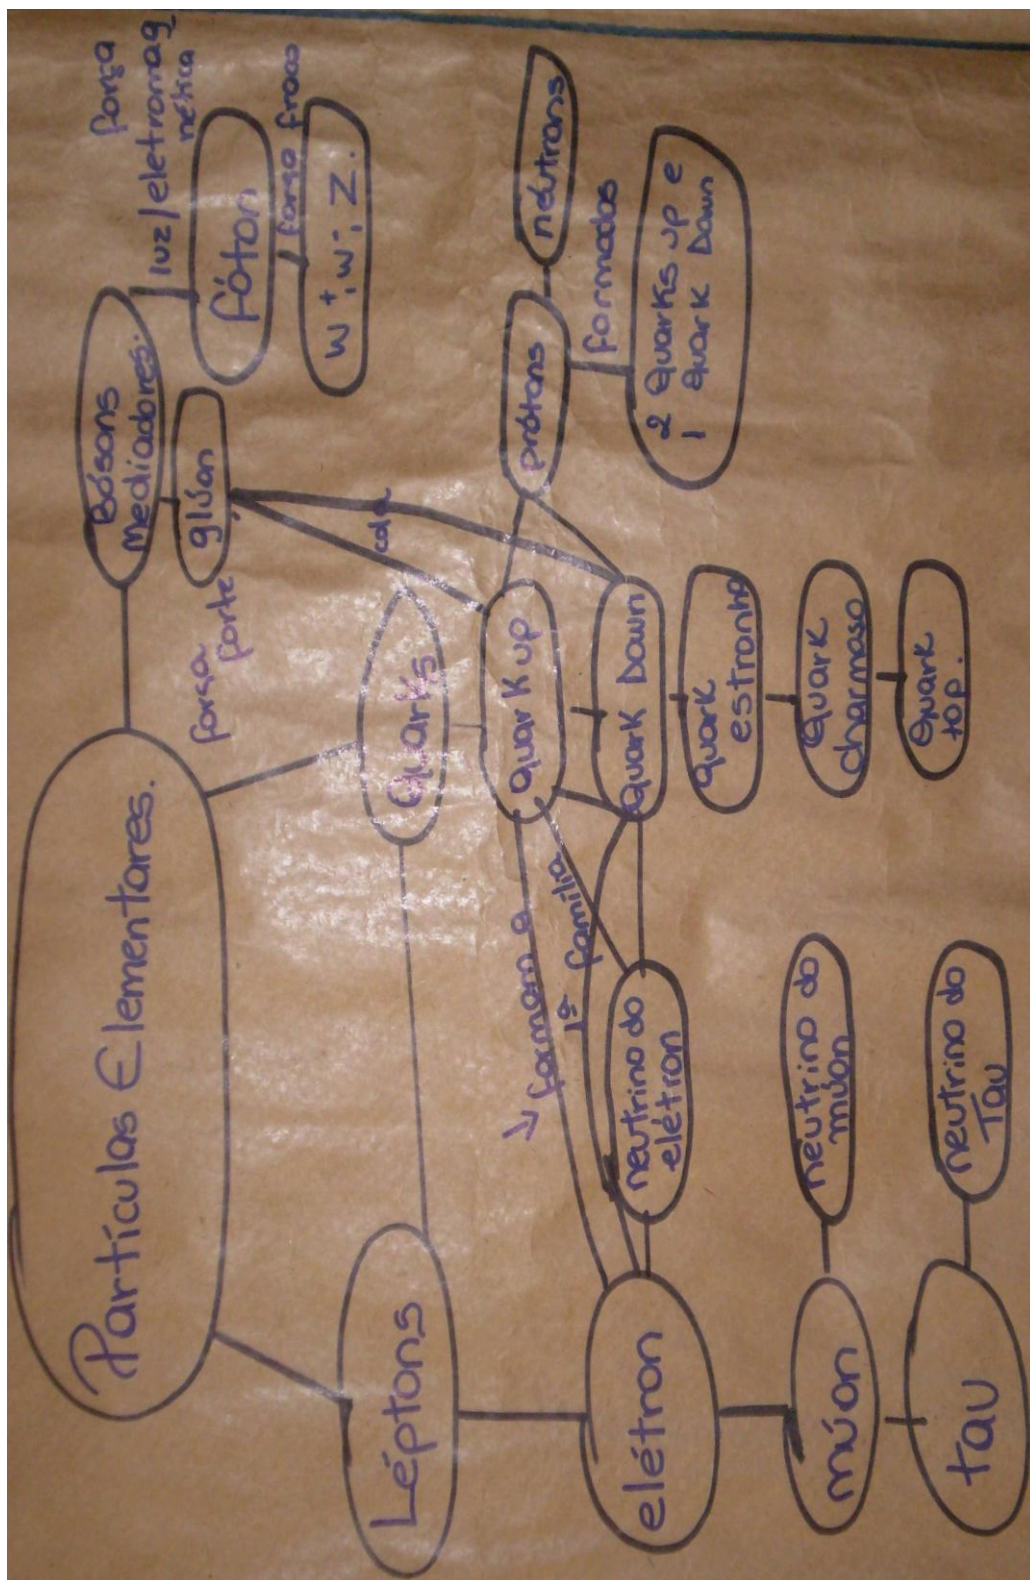 Partículas Elementares.
Bósons
Mediadores.
força
luz/eletromag
nética
fóton
força fraca
W⁺, W⁻, Z.
glúon
força
forte
cola
Léptons
Quarks
Quark up
Quark Down
quark
estranho
Quark
charmoso
Quark
top.
prótons
nêutrons
formados
2 Quarks up e
1 Quark Down
formam a
1ª família
elétron
neutrino do
elétron
múon
neutrino do
múon
tau
neutrino do
Tau